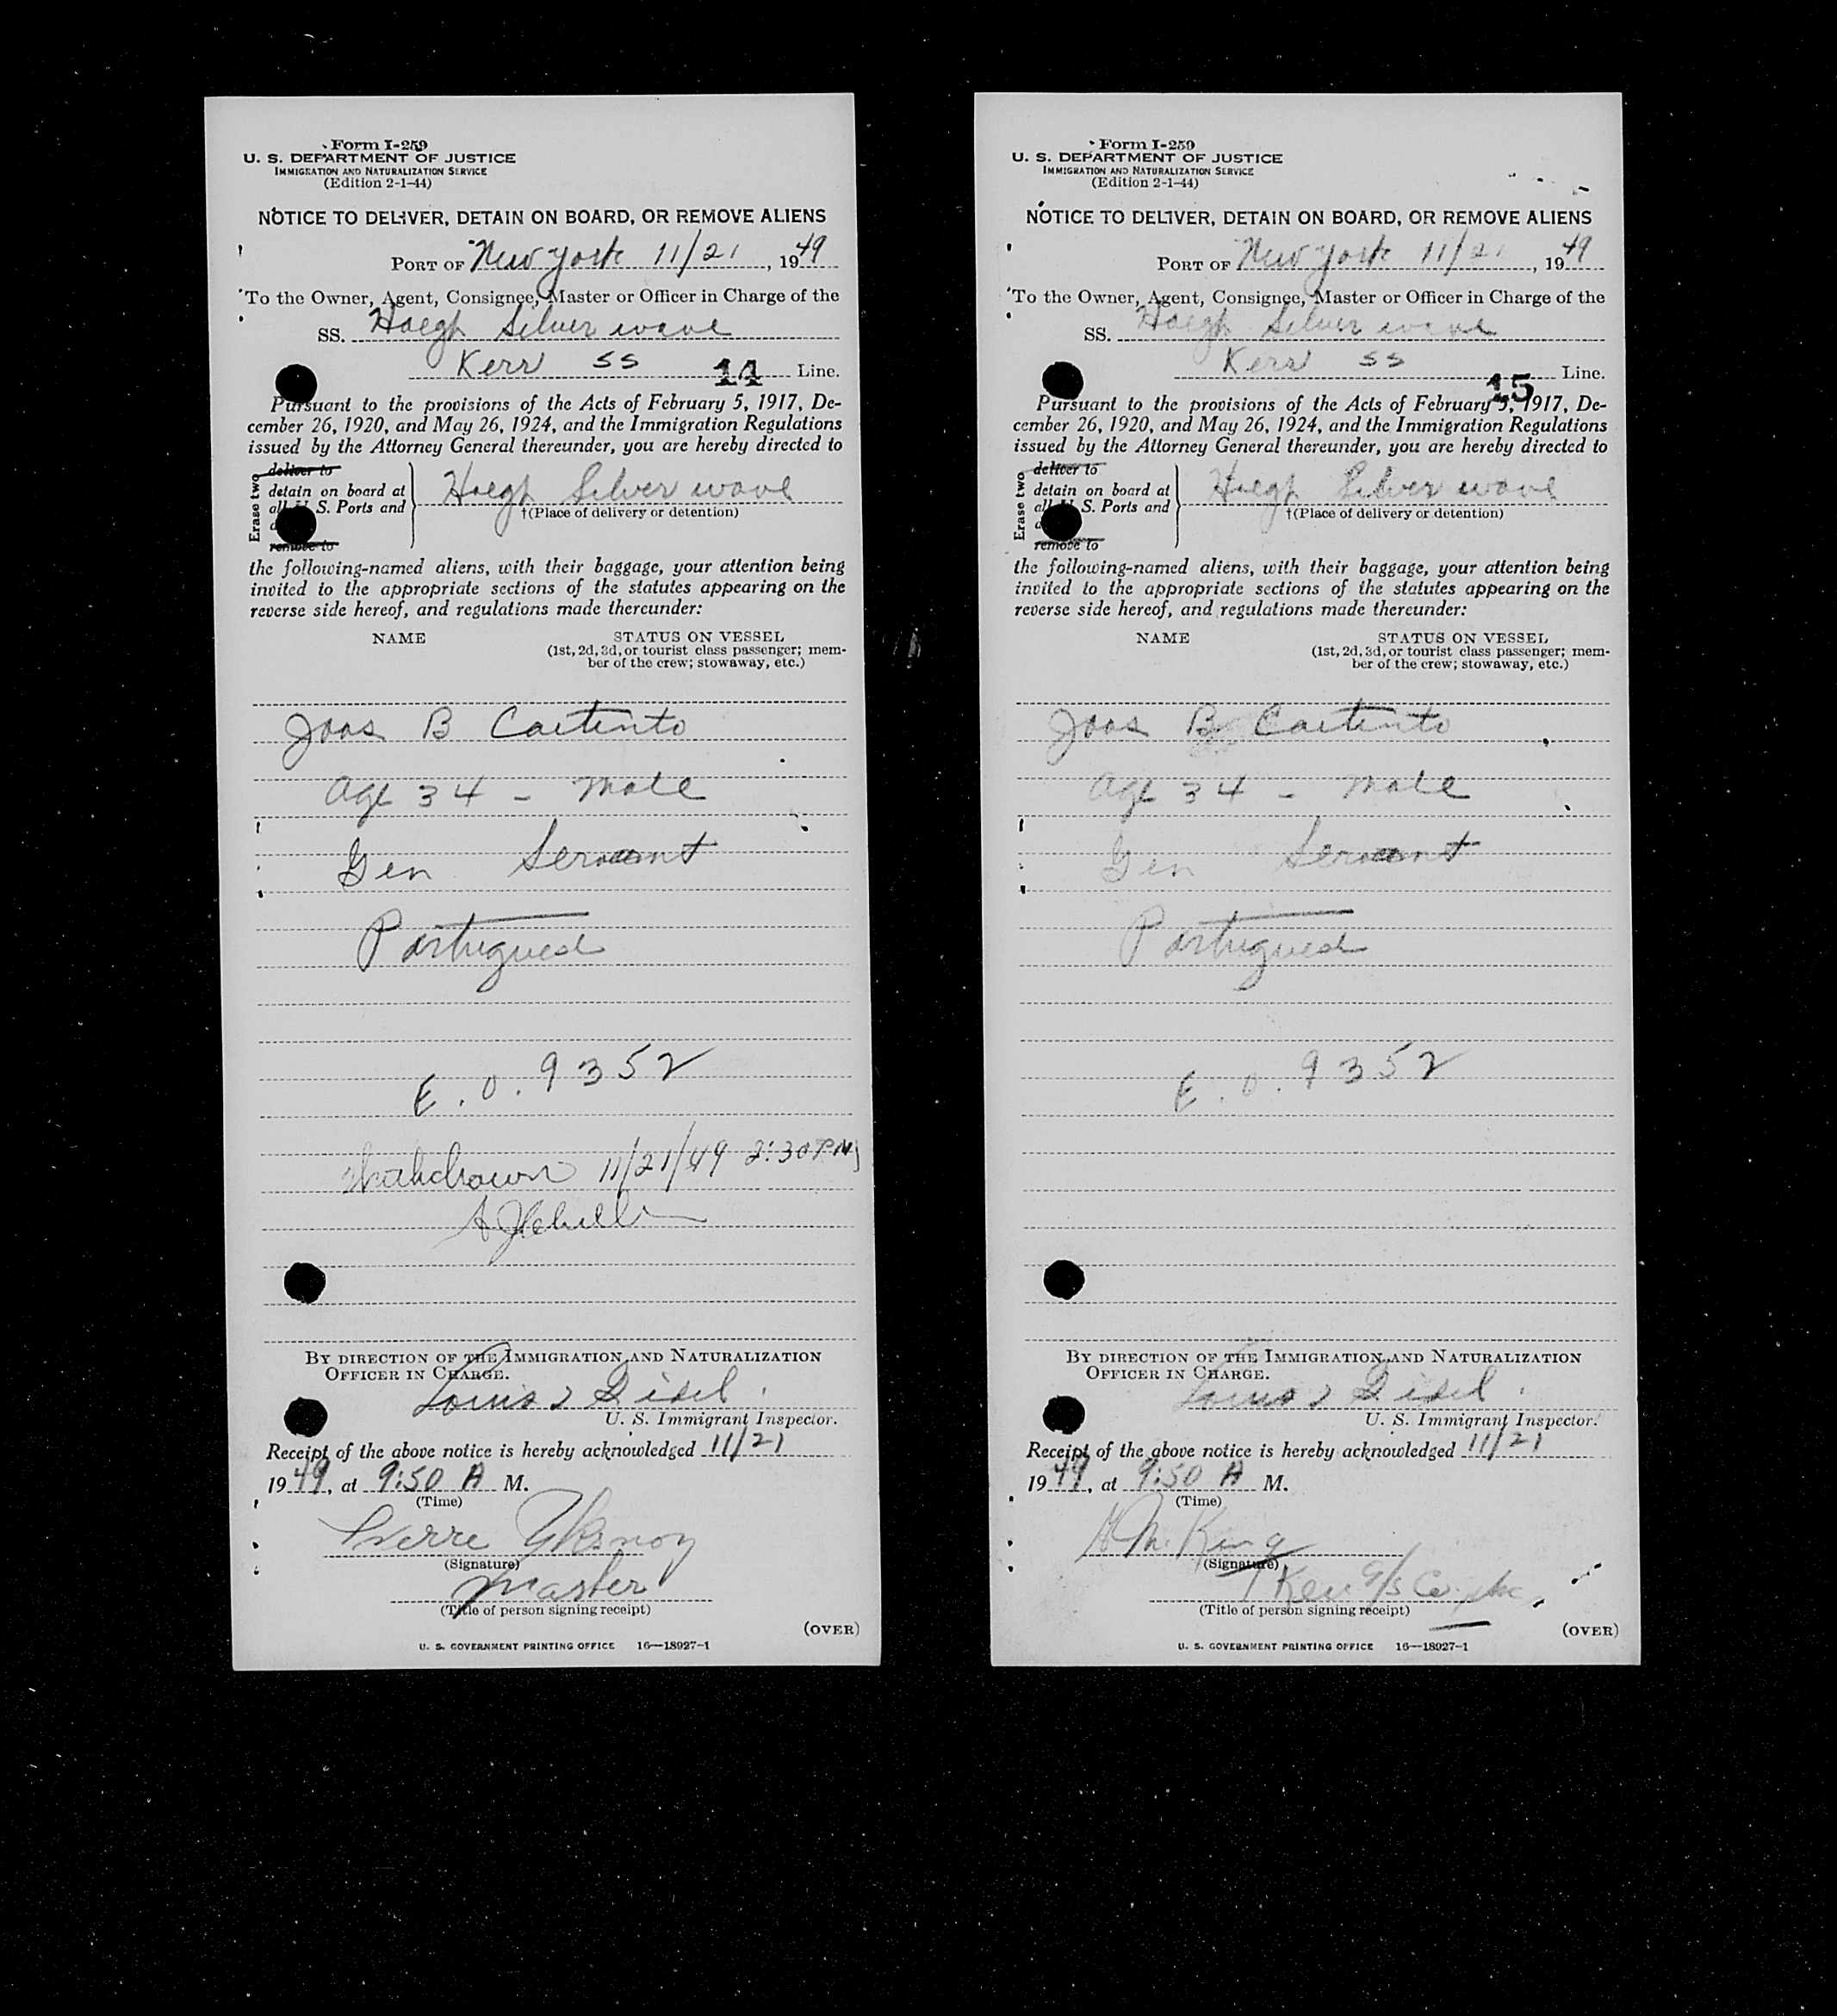 Form I-259
U. S. DEPARTMENT OF JUSTICE
IMMIGRATION AND NATURALIZATION SERVICE
(Edition 2-1-44)
NOTICE TO DELIVER, DETAIN ON BOARD, OR REMOVE ALIENS
PORT OF New York 11/21, 1949
To the Owner, Agent, Consignee, Master or Officer in Charge of the
SS. Hoegh Silver wave
Kerr SS 14 Line.
Pursuant to the provisions of the Acts of February 5, 1917, De-
cember 26, 1920, and May 26, 1924, and the Immigration Regulations
issued by the Attorney General thereunder, you are hereby directed to
Erase two
deliver to
detain on board at
all U. S. Ports and
remove to
Hoegh Silver wave
†(Place of delivery or detention)
the following-named aliens, with their baggage, your attention being
invited to the appropriate sections of the statutes appearing on the
reverse side hereof, and regulations made thereunder:
NAME STATUS ON VESSEL
(1st, 2d, 3d, or tourist class passenger; mem-
ber of the crew; stowaway, etc.)
Joas B
Age 34 - Male
Gen Servant
Portugued
E.O. 9352
Withdrawn 11/21/49 2:30 PM
BY DIRECTION OF THE IMMIGRATION AND NATURALIZATION
OFFICER IN CHARGE.
Louis
U. S. Immigrant Inspector.
Receipt of the above notice is hereby acknowledged 11/21
1949, at 9:50 A M.
(Time)
(Signature)
Master
(Title of person signing receipt)
(OVER)
U. S. GOVERNMENT PRINTING OFFICE 16—18927-1
Form I-259
U. S. DEPARTMENT OF JUSTICE
IMMIGRATION AND NATURALIZATION SERVICE
(Edition 2-1-44)
NOTICE TO DELIVER, DETAIN ON BOARD, OR REMOVE ALIENS
PORT OF New York 11/21, 1949
To the Owner, Agent, Consignee, Master or Officer in Charge of the
SS. Hoegh Silver wave
Kerr SS 15 Line.
Pursuant to the provisions of the Acts of February 5, 1917, De-
cember 26, 1920, and May 26, 1924, and the Immigration Regulations
issued by the Attorney General thereunder, you are hereby directed to
Erase two
deliver to
detain on board at
all U. S. Ports and
remove to
Hoegh Silver wave
†(Place of delivery or detention)
the following-named aliens, with their baggage, your attention being
invited to the appropriate sections of the statutes appearing on the
reverse side hereof, and regulations made thereunder:
NAME STATUS ON VESSEL
(1st, 2d, 3d, or tourist class passenger; mem-
ber of the crew; stowaway, etc.)
Joas B
Age 34 - Male
Gen Servant
Portugued
E.O. 9352
BY DIRECTION OF THE IMMIGRATION AND NATURALIZATION
OFFICER IN CHARGE.
Louis
U. S. Immigrant Inspector.
Receipt of the above notice is hereby acknowledged 11/21
1949, at 9:50 A M.
(Time)
M. King
(Signature)
Kerr S/S Co. Inc.
(Title of person signing receipt)
(OVER)
U. S. GOVERNMENT PRINTING OFFICE 16—18927-1